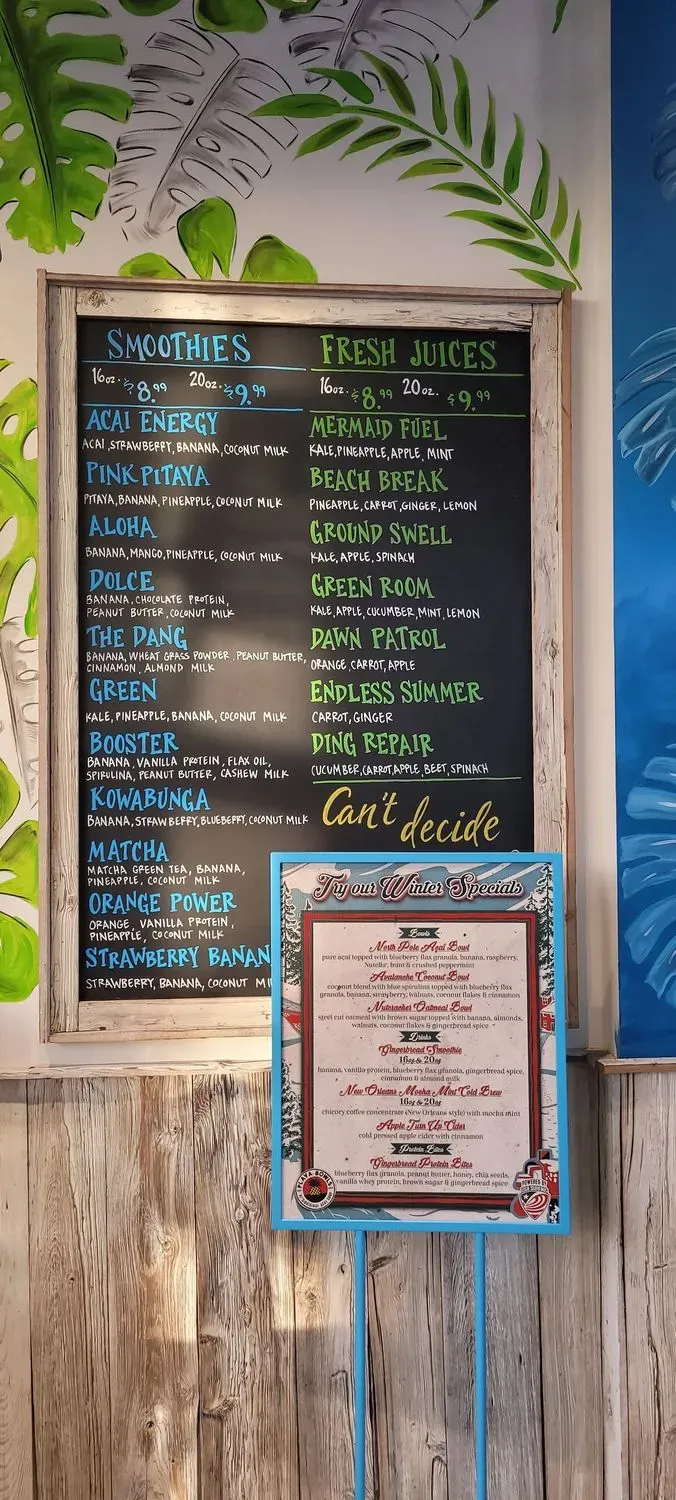 SMOOTHIES
16oz. $8.99 20oz. $9.99
ACAI ENERGY
ACAI, STRAWBERRY, BANANA, COCONUT MILK
PINK PITAYA
PITAYA, BANANA, PINEAPPLE, COCONUT MILK
ALOHA
BANANA, MANGO, PINEAPPLE, COCONUT MILK
DOLCE
BANANA, CHOCOLATE PROTEIN,
PEANUT BUTTER, COCONUT MILK
THE DANG
BANANA, WHEAT GRASS POWDER, PEANUT BUTTER,
CINNAMON, ALMOND MILK
GREEN
KALE, PINEAPPLE, BANANA, COCONUT MILK
BOOSTER
BANANA, VANILLA PROTEIN, FLAX OIL,
SPIRULINA, PEANUT BUTTER, CASHEW MILK
KOWABUNGA
BANANA, STRAWBERRY, BLUEBERRY, COCONUT MILK
MATCHA
MATCHA GREEN TEA, BANANA,
PINEAPPLE, COCONUT MILK
ORANGE POWER
ORANGE, VANILLA PROTEIN,
PINEAPPLE, COCONUT MILK
STRAWBERRY BANAN
STRAWBERRY, BANANA, COCONUT MI
FRESH JUICES
16oz. $8.99 20oz. $9.99
MERMAID FUEL
KALE, PINEAPPLE, APPLE, MINT
BEACH BREAK
PINEAPPLE, CARROT, GINGER, LEMON
GROUND SWELL
KALE, APPLE, SPINACH
GREEN ROOM
KALE, APPLE, CUCUMBER, MINT, LEMON
DAWN PATROL
ORANGE, CARROT, APPLE
ENDLESS SUMMER
CARROT, GINGER
DING REPAIR
CUCUMBER, CARROT, APPLE, BEET, SPINACH
Can't decide
Try our Winter Specials
Bowls
North Pole Açaí Bowl
pure açaí topped with blueberry flax granola, banana, raspberry,
Nutella, mint & crushed peppermint
Avalanche Coconut Bowl
coconut blend with blue spirulina topped with blueberry flax
granola, banana, strawberry, walnuts, coconut flakes & cinnamon
Nutcracker Oatmeal Bowl
steel cut oatmeal with brown sugar topped with banana, almonds,
walnuts, coconut flakes & gingerbread spice
Drinks
Gingerbread Smoothie
16oz & 20oz
banana, vanilla protein, blueberry flax granola, gingerbread spice,
cinnamon & almond milk
New Orleans Mocha Mint Cold Brew
16oz & 20oz
chicory coffee concentrate (New Orleans style) with mocha mint
Apple Turn Up Cider
cold pressed apple cider with cinnamon
Protein Bites
Gingerbread Protein Bites
blueberry flax granola, peanut butter, honey, chia seeds,
vanilla whey protein, brown sugar & gingerbread spice
PLAYA BOWLS
POWERED BY